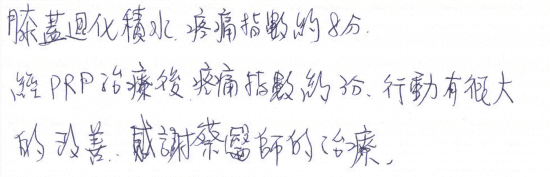 膝蓋退化積水.疼痛指數約8分.
經PRP治療後.疼痛指數約3分.行動有很大
的改善.感謝蔡醫師的治療.